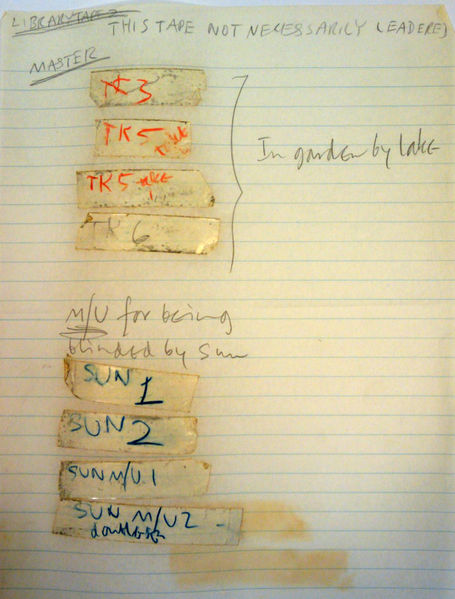 LIBRARY TAPE 2
THIS TAPE NOT NECESSARILY LEADERED
MASTER
TK 3
TK 5
TK 5
TK 6
In garden by lake
M/U for being
blinded by sun
SUN 1
SUN 2
SUN M/U.1
SUN M/U 2